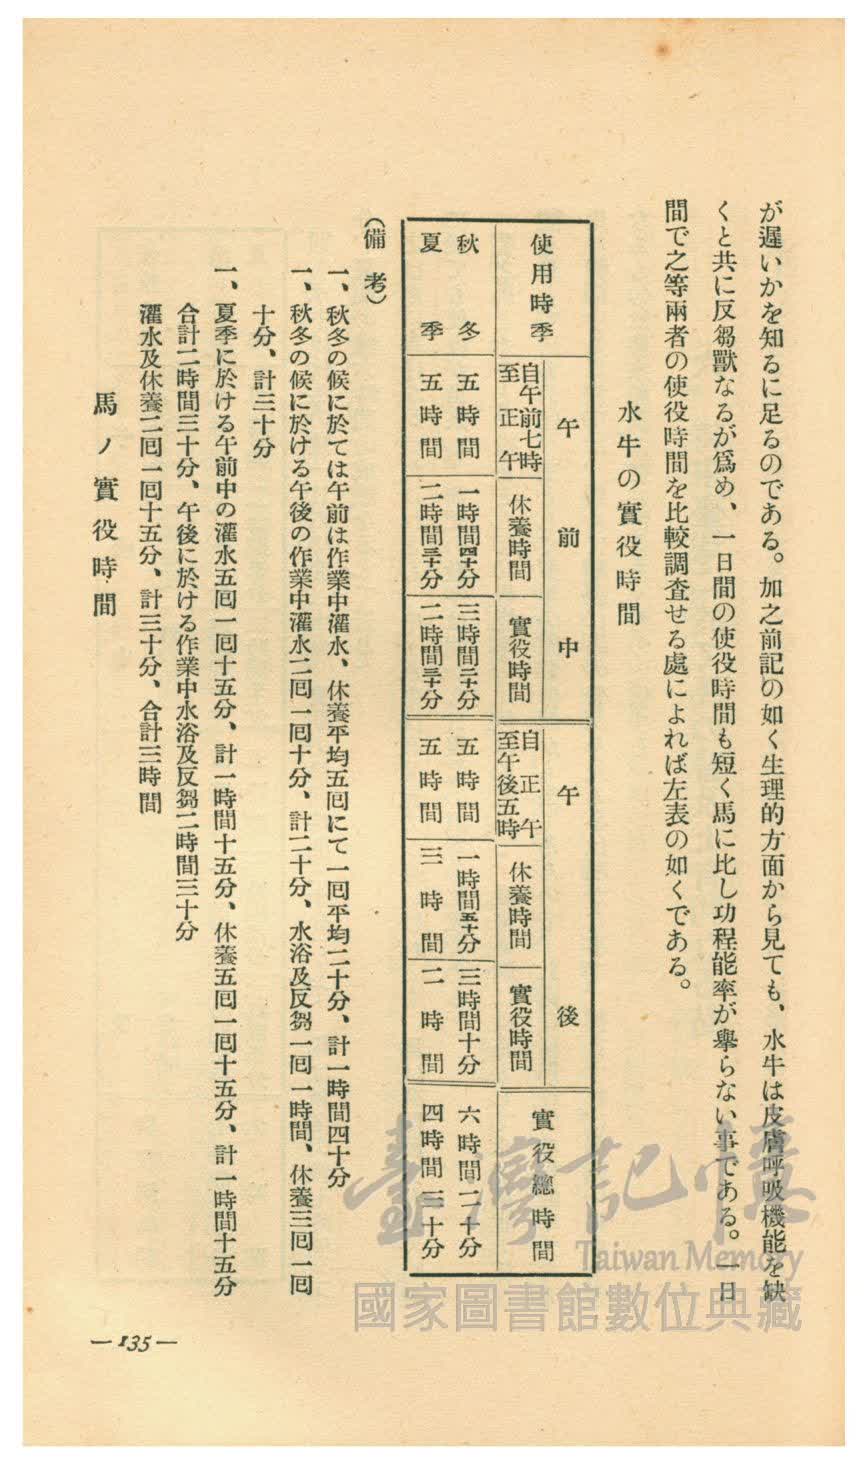 が遲いかを知るに足るのである。加之前記の如く生理的方面から見ても、水牛は皮膚呼吸機能を缺
くと共に反芻獸なるが爲め、一日間の使役時間も短く馬に比し功程能率が擧らない事である。一日
間で之等兩者の使役時間を比較調査せる處によれば左表の如くである。
水牛の實役時間
使用時季
午前中
午後
實役總時間
自午前七時
至正午
休養時間
實役時間
自正午
至午後五時
休養時間
實役時間
秋冬
五時間
一時間四十分
三時間二十分
五時間
一時間五十分
三時間十分
六時間二十分
夏季
五時間
二時間三十分
二時間三十分
五時間
三時間
二時間
四時間三十分
(備考)
一、秋冬の候に於ては午前は作業中灌水、休養平均五囘にて一囘平均二十分、計一時間四十分
一、秋冬の候に於ける午後の作業中灌水二囘一囘十分、計二十分、水浴及反芻一囘一時間、休養三囘一囘
十分、計三十分
一、夏季に於ける午前中の灌水五囘一囘十五分、計一時間十五分、休養五囘一囘十五分、計一時間十五分
合計二時間三十分、午後に於ける作業中水浴及反芻二時間三十分
灌水及休養二囘一囘十五分、計三十分、合計三時間
馬ノ實役時間
—135—
臺灣記憶
Taiwan Memory
國家圖書館數位典藏